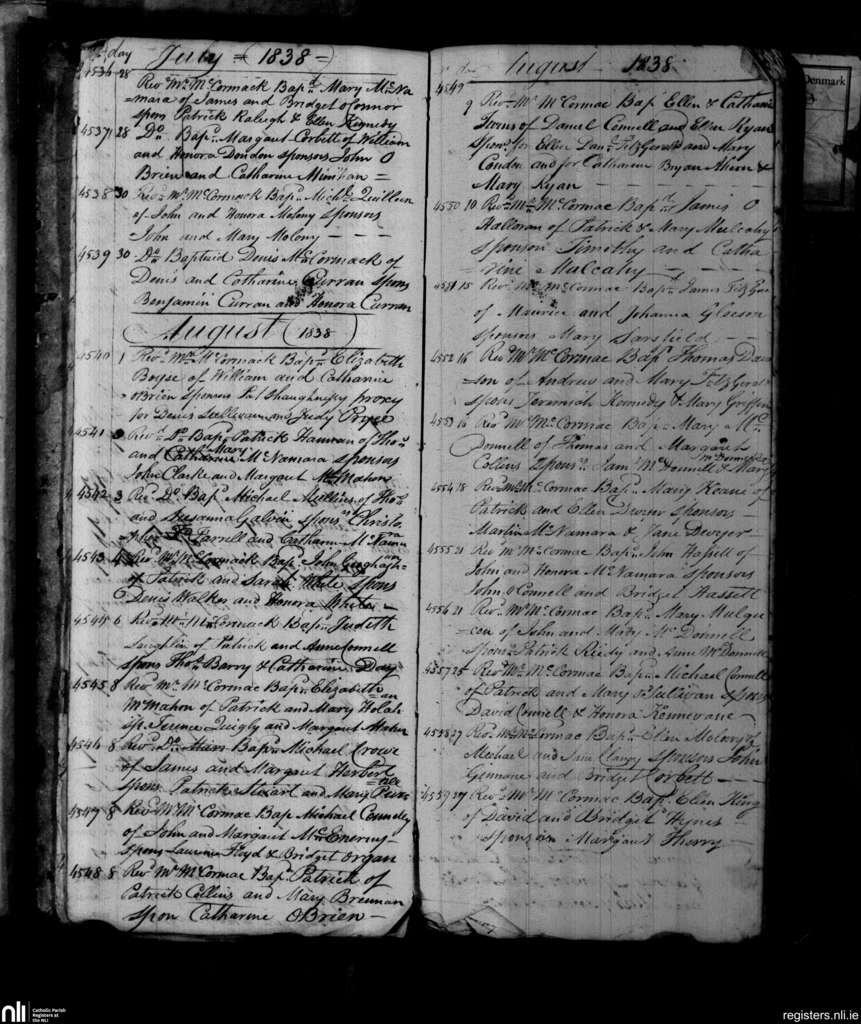 day July = (1838 =)
4536 28
Revd. Mr. McCormack Bapd. Mary McNa
=mara of James and Bridget OConnor
spons Patrick Raleigh & Ellen Kennedy
4537 28 Do. Bapd. Margaret Corbett of William
and Honora Dondon sponsors John O
Brien and Catharine Minihan =
4538 30 Revd. Mr. McCormack Bapd. Michl.
of John and Honora Molony sponsors
John and Mary Molony - - -
4539 30 Do. Baptised Denis McCormack of
Denis and Catharine Curran spons
Benjamin Curran and Honora Curran
August (1838)
4540 1 Revd. Mr. McCormack Bapd. Elizabeth
Boyse of William and Catharine
OBrien sponsors Shaughnessy proxy
for Denis and Judy Pryce
4541 Revd. Do. Bapd. Patrick of Thos.
Mary
and Catharine McNamara sponsors
John Clarke and Margaret McMahon
4542 3 Revd. Do. Bapd. Michael Mullins of Thos.
and Susanna Galvin spons Christo
Farrell and Catharine McNama
ra
4543 4 Revd. Mr. McCormack Bapd. John Geoghagh
an
of Patrick and Sarah White spons
Denis Walker and Honora White -
4545 6 Revd. Mr. McCormack Bapd. Judith
Laughlin of Patrick and Anne Connell
spons Thos. Barry & Catharine Day
4545 8 Revd. Mr. McCormac Bapd. Elizabeth
McMahon of Patrick and Mary Holah
an
Terence Quigly and Margaret
4546 8 Revd. Do. Bapd. Michael Crowe
of James and Margaret Herbert
spons Patrick and Mary
4547 8 Revd. Mr. McCormac Bapd. Michael
of John and Margaret McEnerny
spons Laurence Floyd & Bridget Organ
4548 8 Revd. Mr. McCormac Bapd. Patrick of
Patrick Collins and Mary Brennan
spon Catharine OBrien -
August 1838
4549
9 Revd. Mr. McCormac Bapd. Ellen & Catharine
Twins of Daniel Connell and Ellen Ryan
spons. for Ellen FitzGerald and Mary
Condon and for Catharine Bryan Ahern &
Mary Ryan - - - - -
4550 10 Revd. Mr. McCormac Bapd. James O
Halloran of Patrick & Mary Mulcahy
sponsors Timothy and Catha
rine Mulcahy - - - -
4551 15 Revd. Mr. McCormac Bapd. James
of Maurice and Johanna Gleeson
sponsors Mary Sarsfield - -
4552 16 Revd. Mr. McCormac Bapd. Thomas
son of Andrew and Mary FitzGerald
spons Jeremiah Kennedy & Mary Griffin
4553 16 Revd. Mr. McCormac Bapd. Mary Mc
Donnell of Thomas and Margaret
McDonnell
Collins spons. Jams. McDonnell & Mary
4554 18 Revd. Mr. McCormac Bapd. Mary Keane of
Patrick and Ellen Dwyer sponsors
Martin McNamara & Jane Dwyer -
4555 21 Revd. Mr. McCormac Bapd. John of
John and Honora McNamara sponsors
John OConnell and Bridget Hassett
4556 21 Revd. Mr. McCormac Bapd. Mary Mulque
=een of John and Mary McDonnell
spons. Patrick Reidy and Anne McDonnell
4557 25 Revd. Mr. McCormac Bapd. Michael Connell
of Patrick and Mary OSullivan spons
David Connell & Honora Kennevane -
4558 27 Revd. Mr. McCormac Bapd. Ellen Molony of
Michael and Jane Clancy sponsors John
and Bridget Corbett - -
4559 27 Revd. Mr. McCormac Bapd. Ellen King
of David and Bridget Hynes
sponsors Margaret Sherry
Denmark
nli Catholic Parish
Registers at
the NLI
registers.nli.ie